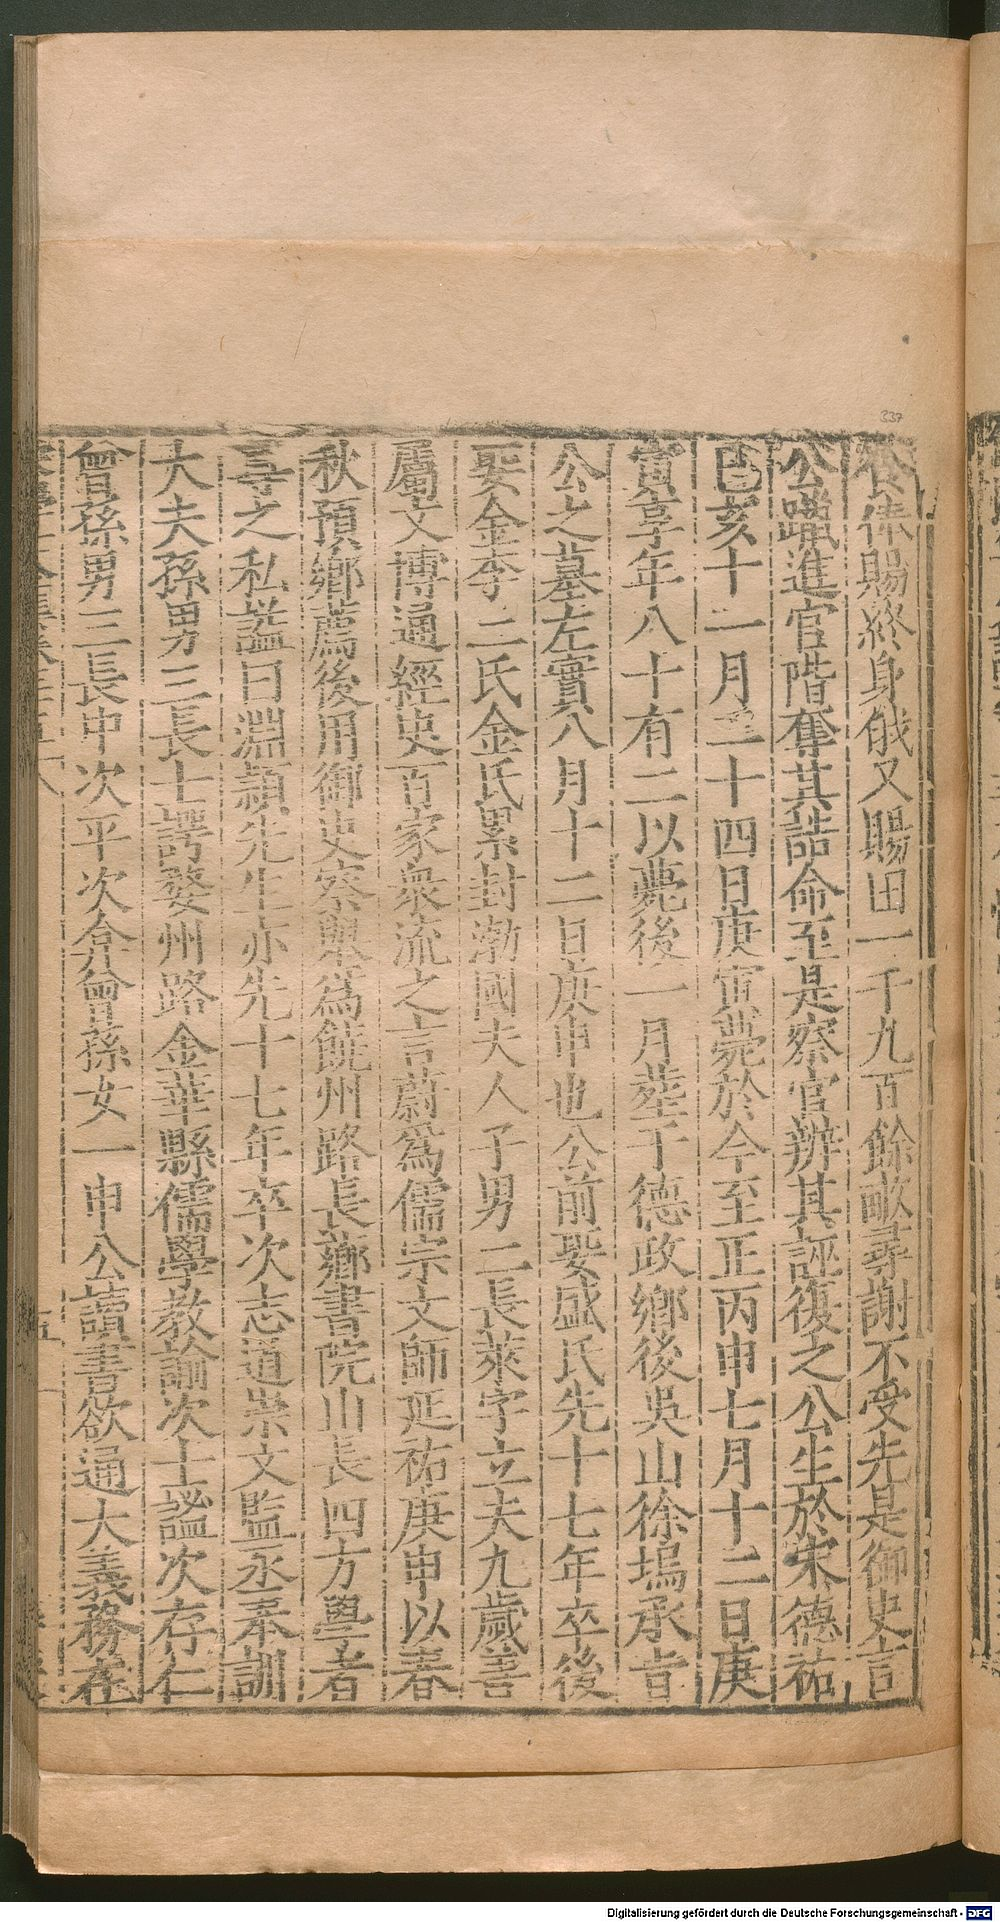 食俸賜終身俄又賜田一千九百餘畝尋謝不受先是御史言
公躐進官階奪其誥命至是察官辨其誣復之公生於宋德祐
己亥十一月二十四日庚寅薨於今至正丙申七月十二日庚
寅享年八十有二以薨後一月塟于德政鄉後吳山徐塢承旨
公之墓左實八月十二日庚申也公前娶盛氏先十七年卒後
娶金李二氏金氏累封渤國夫人子男二長萊字立夫九歲善
屬文博通經史百家衆流之言蔚爲儒宗文師延祐庚申以春
秋預鄉薦後用御史察舉爲饒州路長薌書院山長四方學者
尋之私謚曰淵穎先生亦先十七年卒次志道崇文監丞奉訓
大夫孫男三長士諤婺州路金華縣儒學教諭次士謐次存仁
曾孫男三長中次平次弇曾孫女一申公讀書欲通大義務在
337
Digitalisierung gefördert durch die Deutsche Forschungsgemeinschaft - DFG